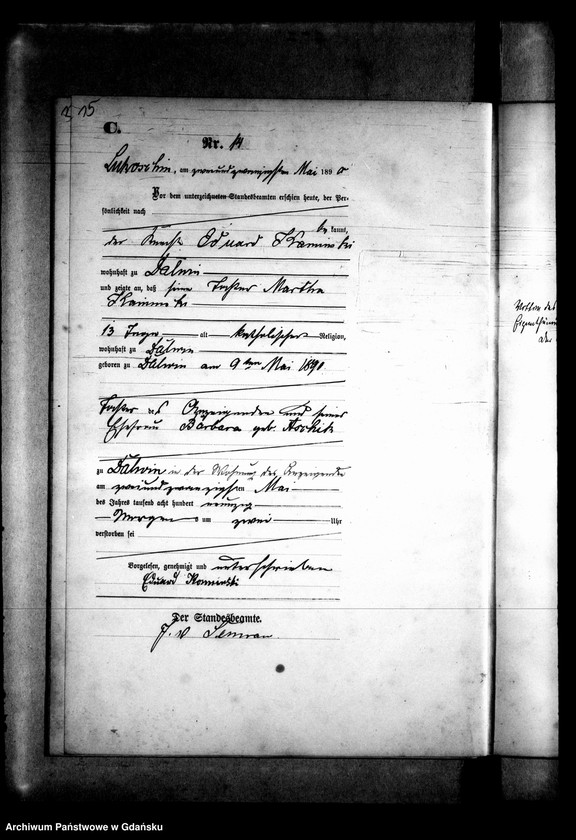 15
C.
Nr. 14
Lukoschin, am zweiundzwanzigsten Mai 1890
Vor dem unterzeichneten Standesbeamten erschien heute, der Per-
sönlichkeit nach
bekannt,
der Knecht Eduard Kaminski
wohnhaft zu Dalwin
und zeigte an, daß seine Tochter Martha
Kaminski
13 Tage alt katholischer Religion,
wohnhaft zu Dalwin
geboren zu Dalwin am 9ten Mai 1890
Tochter des Anzeigenden und seiner
Ehefrau Barbara geb.
zu Dalwin in der Wohnung des Anzeigenden
am zweiundzwanzigsten Mai
des Jahres tausend acht hundert neunzig
Morgens um zwei Uhr
verstorben sei
Vorgelesen, genehmigt und unterschrieben
Eduard Kaminski
Der Standesbeamte.
J. v
des
Archiwum Państwowe w Gdańsku